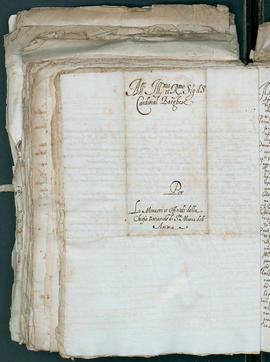 All' Ill.mo et R.mo Sig.r il S.r
Cardinal Borghese
Per
Li Ministri et Offitiali della
Chiesa Nationale di S.ta Maria dell'
Anima